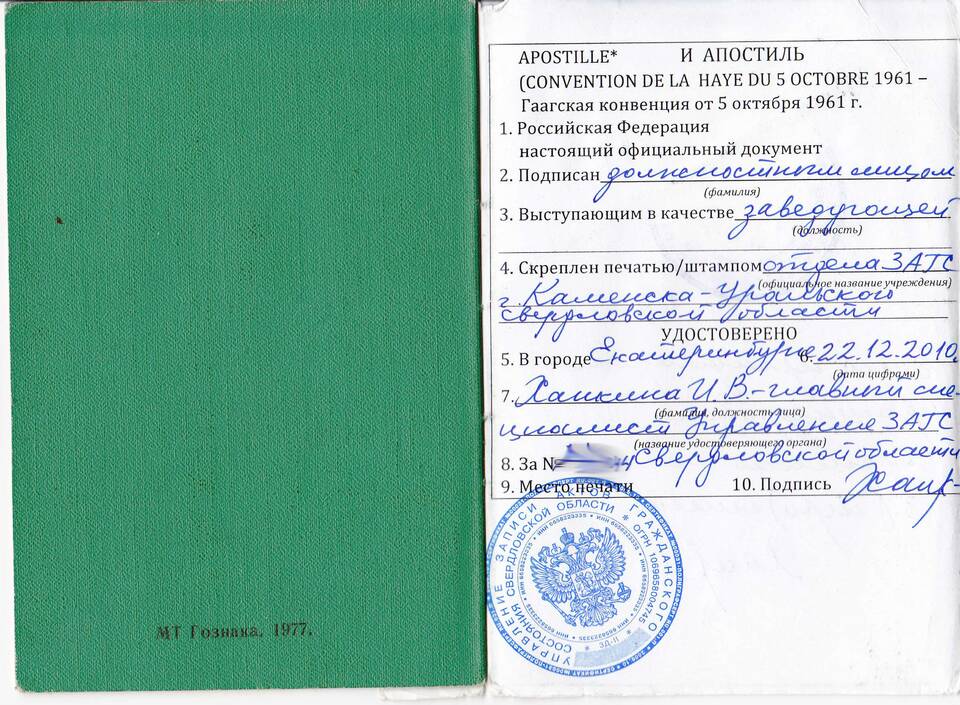 МТ Гознака. 1977.
APOSTILLE* И АПОСТИЛЬ
(CONVENTION DE LA HAYE DU 5 OCTOBRE 1961 –
Гаагская конвенция от 5 октября 1961 г.
1. Российская Федерация
настоящий официальный документ
2. Подписан должностным лицом
(фамилия)
3. Выступающим в качестве заведующей
(должность)
4. Скреплен печатью/штампом отдела ЗАГС
(официальное название учреждения)
г. Каменска-Уральского
Свердловской области
УДОСТОВЕРЕНО
5. В городе Екатеринбурге 6. 22.12.2010
(дата цифрами)
7. Ханкина И. В. – главный спе-
(фамилия, должность лица)
циалист Управления ЗАГС
(название удостоверяющего органа)
8. За № Свердловской области
9. Место печати 10. Подпись
УПРАВЛЕНИЕ ЗАПИСИ АКТОВ ГРАЖДАНСКОГО
СОСТОЯНИЯ СВЕРДЛОВСКОЙ ОБЛАСТИ * ОГРН 1069658004745
* ИНН 6658223335 * ИНН 6658223335
* ЗД-П *